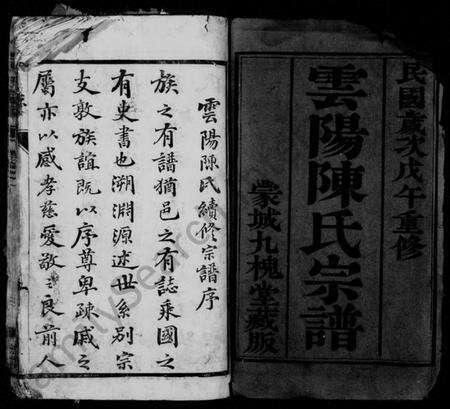 民國歲次戊午重修
雲陽陳氏宗譜
蒙城九槐堂藏版
雲陽陳氏續修宗譜序
族之有譜猶邑之有誌乘國之
有史書也溯淵源述世系別宗
支敦族誼既以序尊卑疎戚之
屬亦以感孝慈愛敬之良前人
FamilySearch